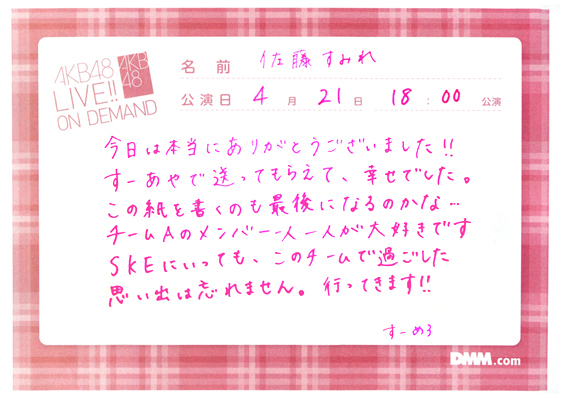 AKB48
LIVE!!
ON DEMAND
AKB
48
名 前 佐藤すみれ
公演日 4月21日 18:00 公演
今日は本当にありがとうございました!!
すーあやで送ってもらえて、幸せでした。
この紙を書くのも最後になるのかな…
チームAのメンバー一人一人が大好きです
SKEにいっても、このチームで過ごした
思い出は忘れません。行ってきます!!
すーめろ
DMM.com